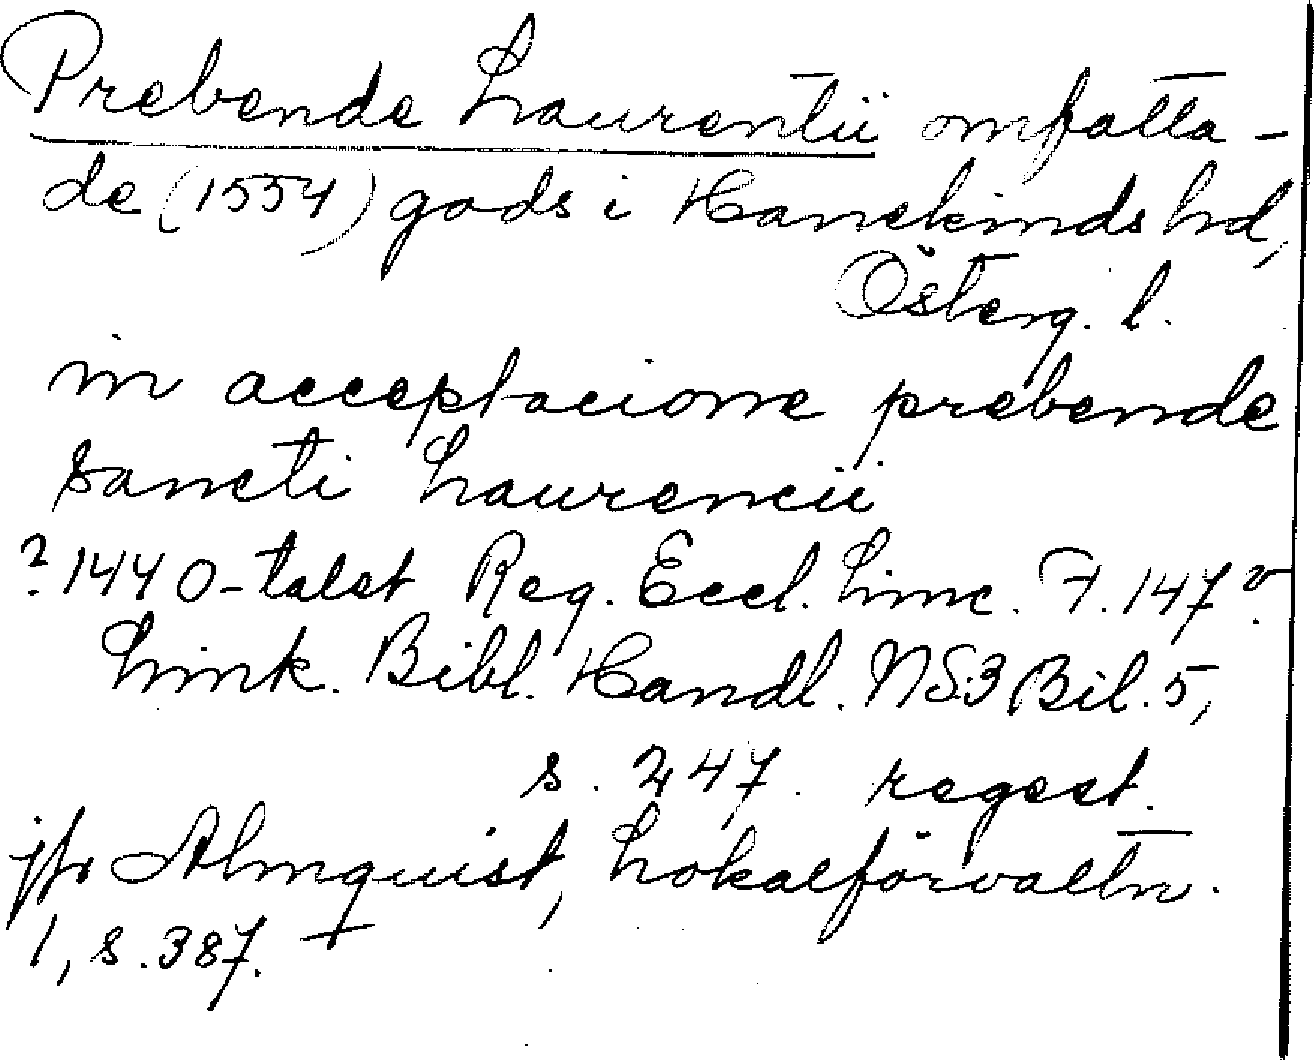 Prebende Laurentii omfatta-
de (1554) gods i Hanekinds hd,
Österg. l.
in acceptacione prebende
sancti Laurencii
? 1440-talet Reg. Eccl. Linc. F. 147 v.
Link. Bibl. Handl. NS:3 Bil. 5,
s. 247. regest.
jfr Almquist, Lokalförvaltn.
1, s. 387. +